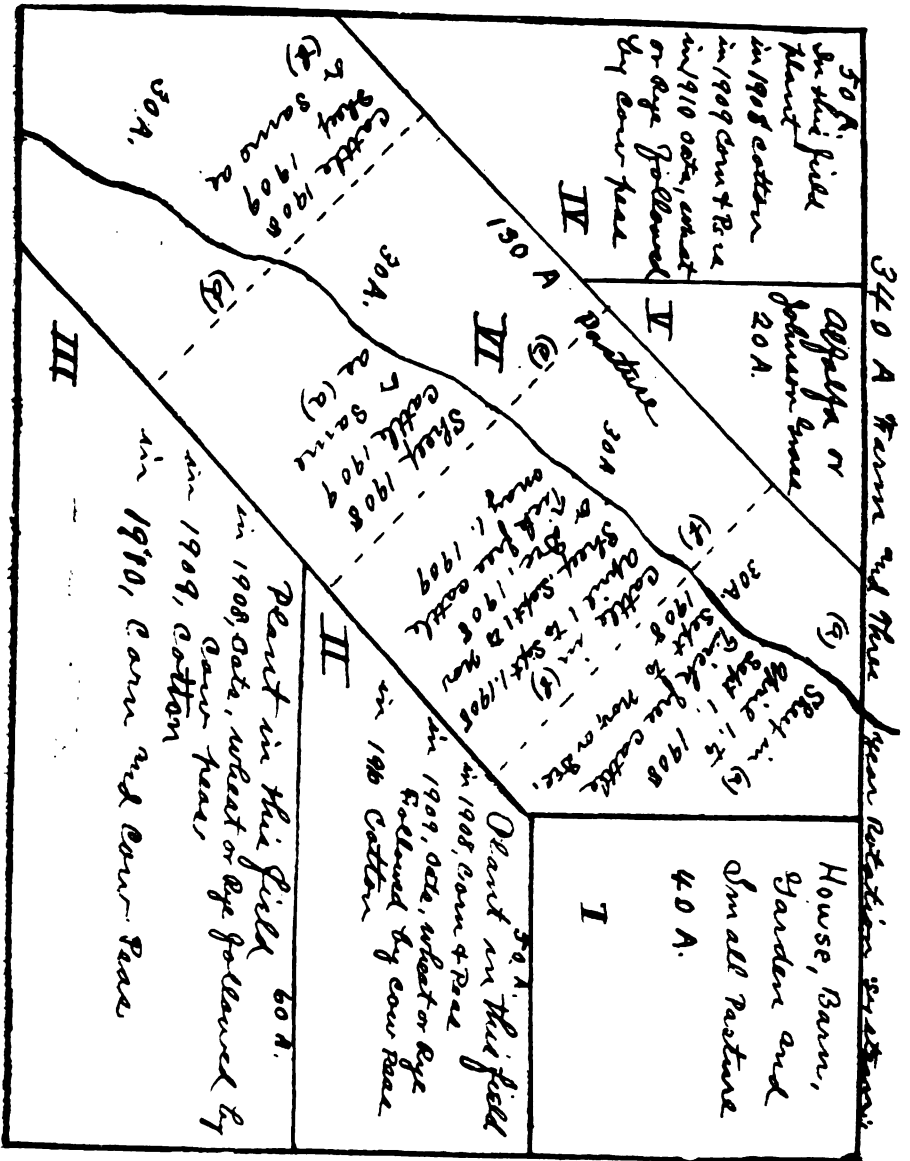 340 A Farm and Three year Rotation system
50 A.
In this field
plant
in 1908 cotton
in 1909 Corn & Peas
in 1910 oats, wheat
or Rye followed
by cow peas
IV
Alfalfa or
Johnson Grass
20 A.
V
House, Barn,
Garden and
Small Pasture
40 A.
I
130 A
Pasture
VI
30 A.
30 A.
30 A
30 A.
(a)
Sheep in
(a)
April 1. to
Sept 1.
1908
Tick free cattle
Sept to
1908
nov or Dec.
(b)
Cattle in (b)
April 1 to Sept. 1. 1908
Sheep Sept 1 to nov
or Dec. 1908
Tick free cattle
may 1. 1909
(c)
Sheep 1908
Cattle 1909
Same
as (a)
(d)
Cattle 1908
Sheep 1909
Same as
50 A.
Plant in this field
in 1908, Corn & Peas
in 1909, oats, wheat or Rye
Followed by cow Peas
in 1910 Cotton
II
60 A.
Plant in this field
in 1908, oats, wheat or Rye followed by
Cow peas
in 1909, Cotton
in 1910, Corn and Cow Peas
III